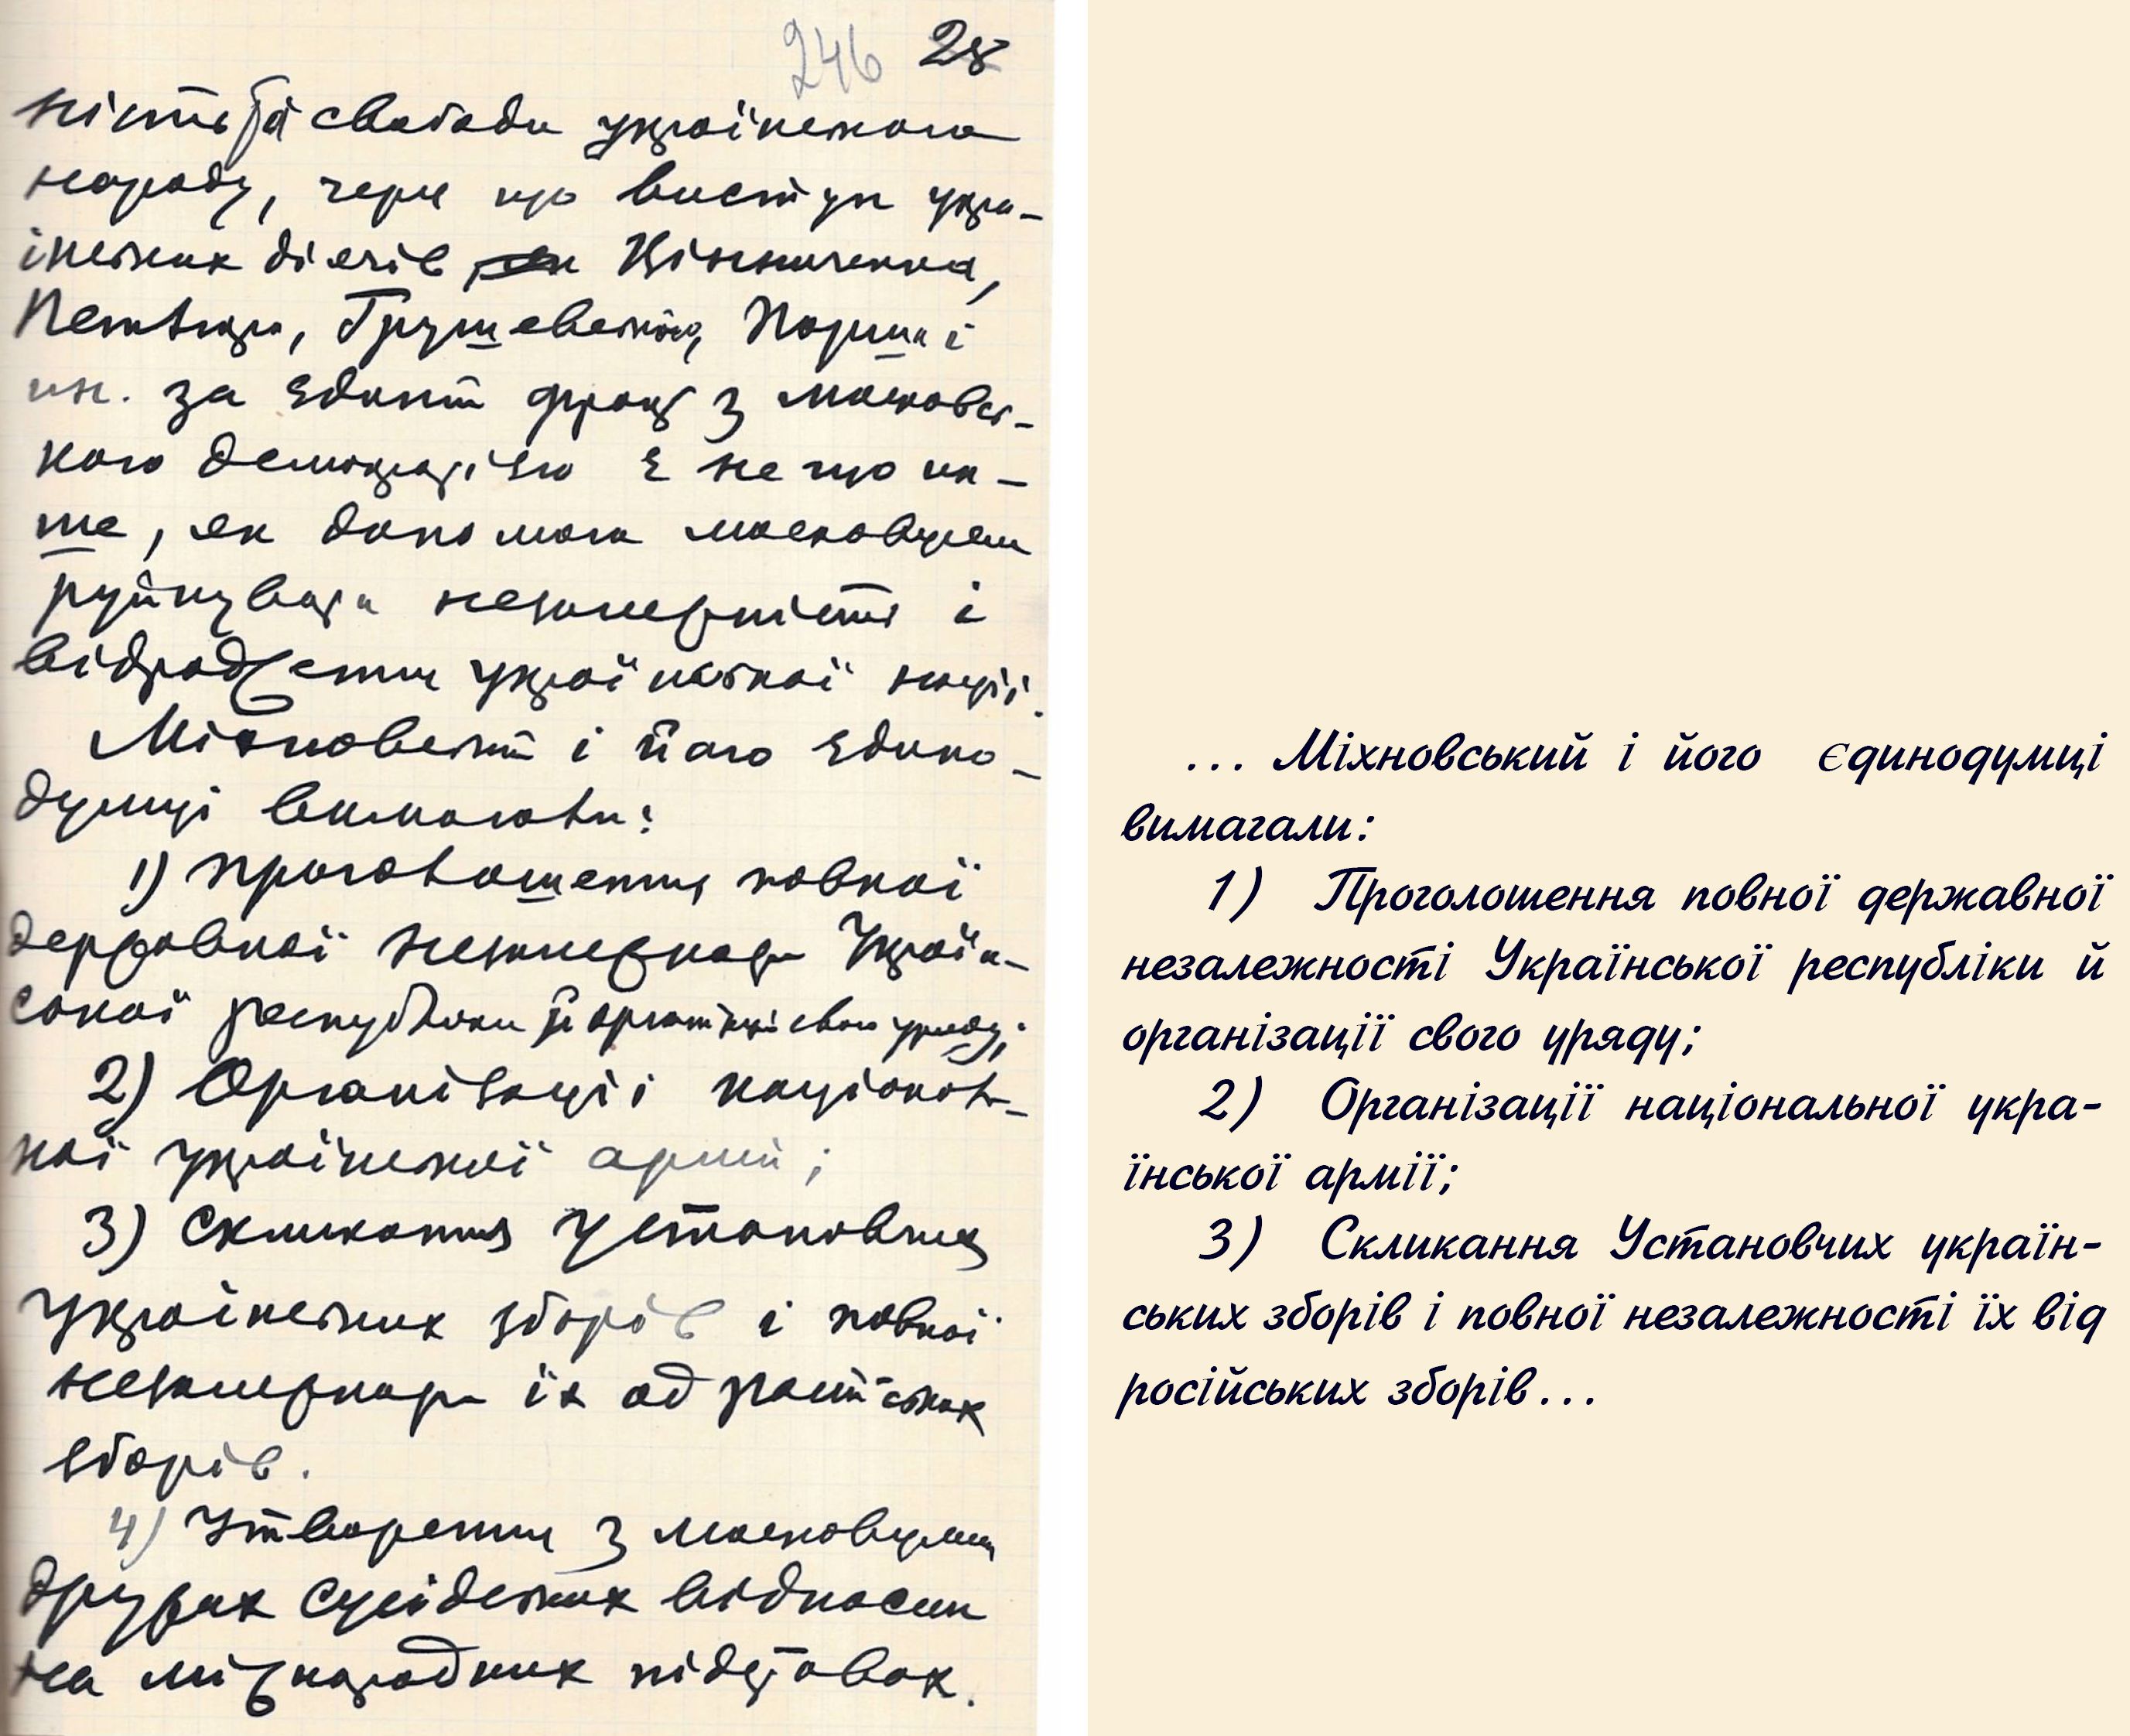 246 28
ність й свободи українського
народу, через що виступ укра-
інських діячів Вінниченка,
Петлюри, Грушевського, Порша і
ин. за єдиний фронт з московсь-
кою демократією є не що ин-
ше, як допомога московцям
руйнувати незалежність і
відродження української нації.
Міхновський і його єдино-
думці вимагали:
1) Проголошення повної
державної незалежности Україн-
ської республіки й організації свого уряду;
2) Організації національ-
ної української армії;
3) Скликання Установчих
українських зборів і повної
незалежности їх од російських
зборів.
4) Утворення з московцями
дружих сусідських відносин
на міжнародних підставах.
... Міхновський і його єдинодумці
вимагали:
1) Проголошення повної державної
незалежності Української республіки й
організації свого уряду;
2) Організації національної укра-
їнської армії;
3) Скликання Установчих україн-
ських зборів і повної незалежності їх від
російських зборів...